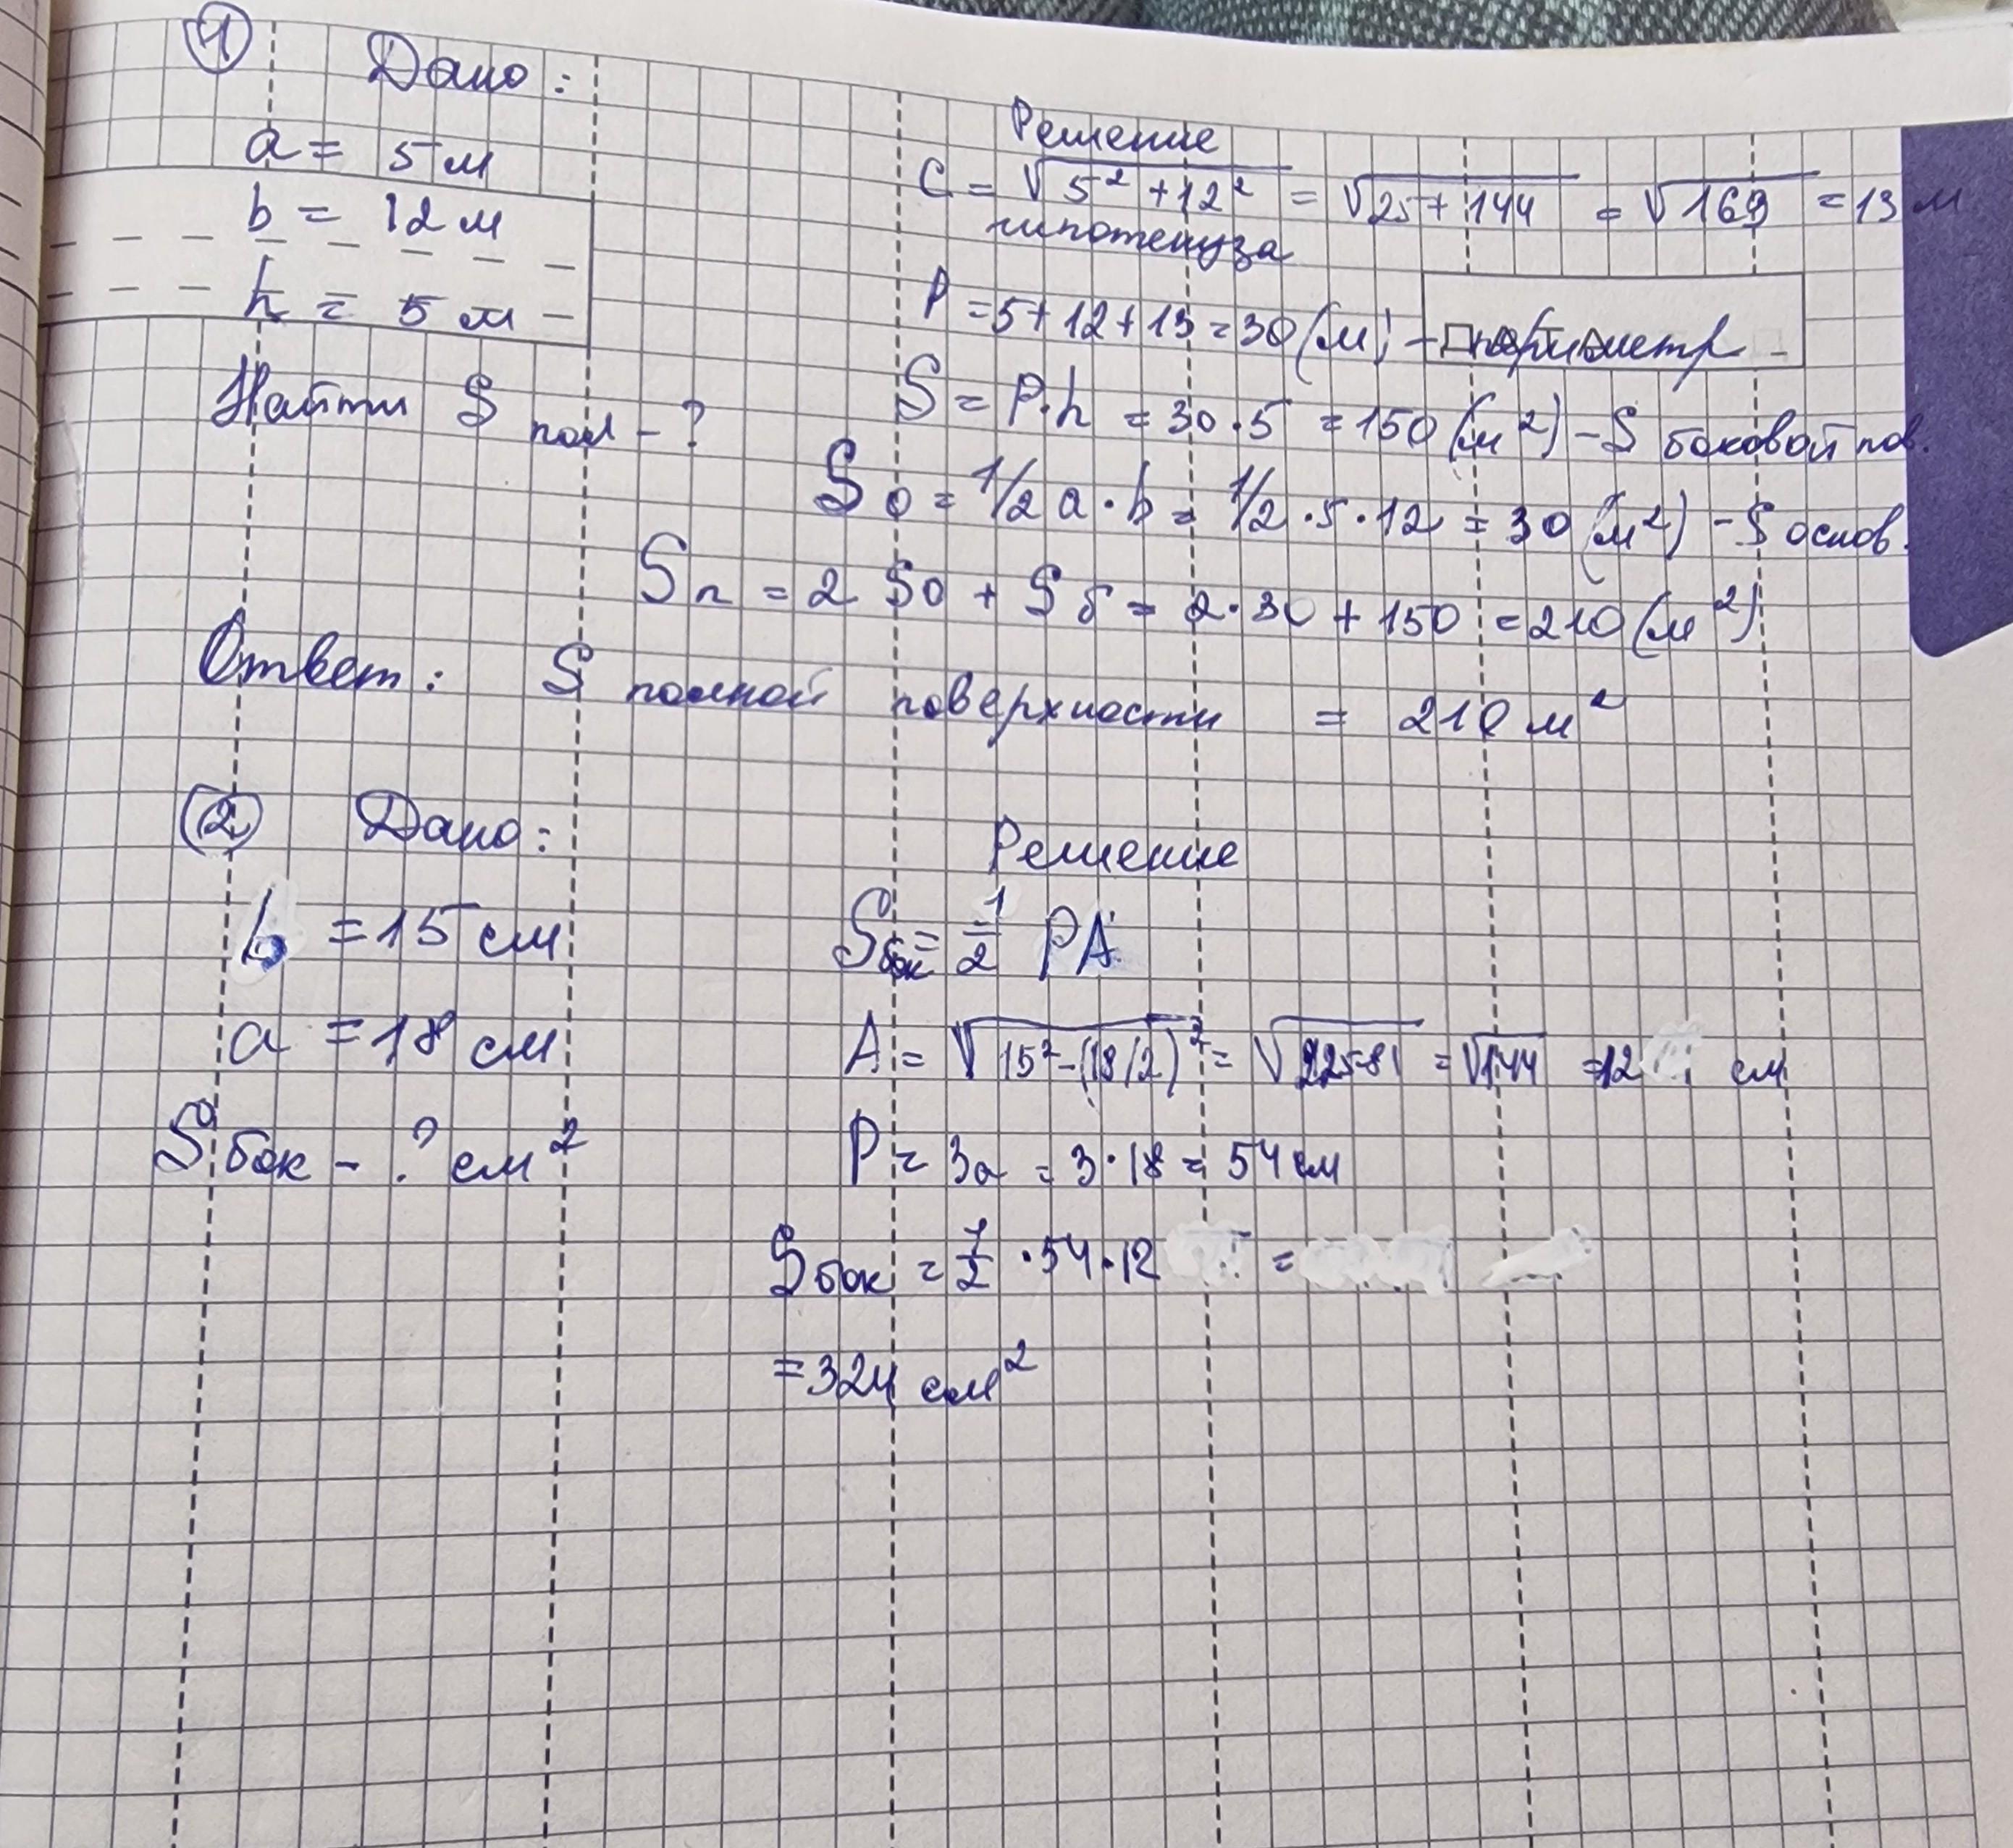 ① Дано:
a = 5 м
b = 12 м
h = 5 м
Найти S пол - ?
Решение
C = √5² + 12² = √25 + 144 = √169 = 13 м
гипотенуза
P = 5 + 12 + 13 = 30 (м) - периметр
S = P · h = 30 · 5 = 150 (м²) - S боковой пов.
S о = 1/2 a · b = 1/2 · 5 · 12 = 30 (м²) - S основ.
S п = 2 Sо + S б = 2 · 30 + 150 = 210 (м²)
Ответ: S полной поверхности = 210 м²
② Дано:
b = 15 см
a = 18 см
S бок - ? см²
Решение
S бок = 1/2 PA
A = √15² - (18/2)² = √225-81 = √144 = 12 см
P = 3a = 3 · 18 = 54 см
S бок = 1/2 · 54 · 12 =
= 324 см²